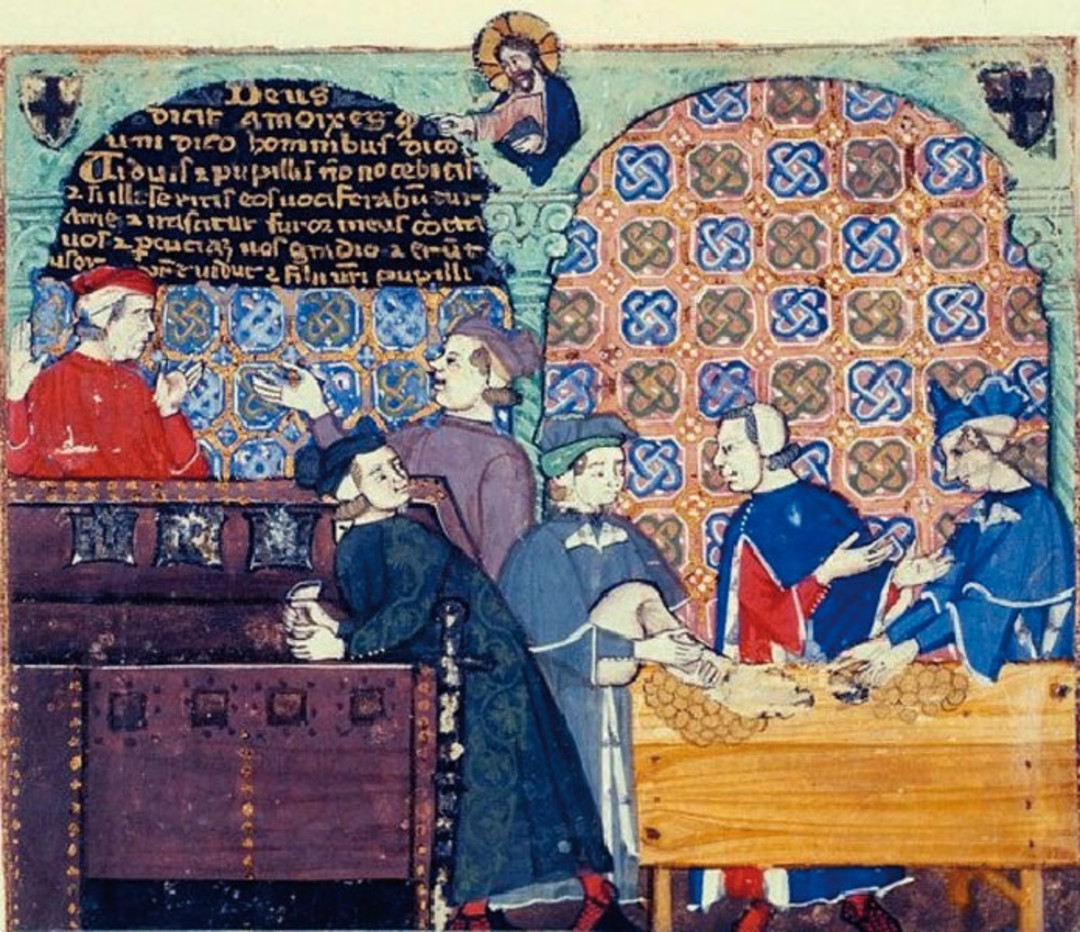 Deus
dicit amoixes q
um dico hominibus dico
Viduis ⁊ pupillis nō nocebitis
⁊ si illeseritis eos vociferabūtur
ame ⁊ irascitur furor meus cōtra
uos ⁊ pcuciā uos gladio ⁊ erūt
uidue ⁊ filii uri pupilli